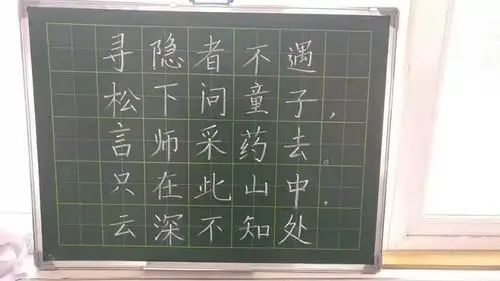 寻隐者不遇
松下问童子，
言师采药去。
只在此山中．
云深不知处